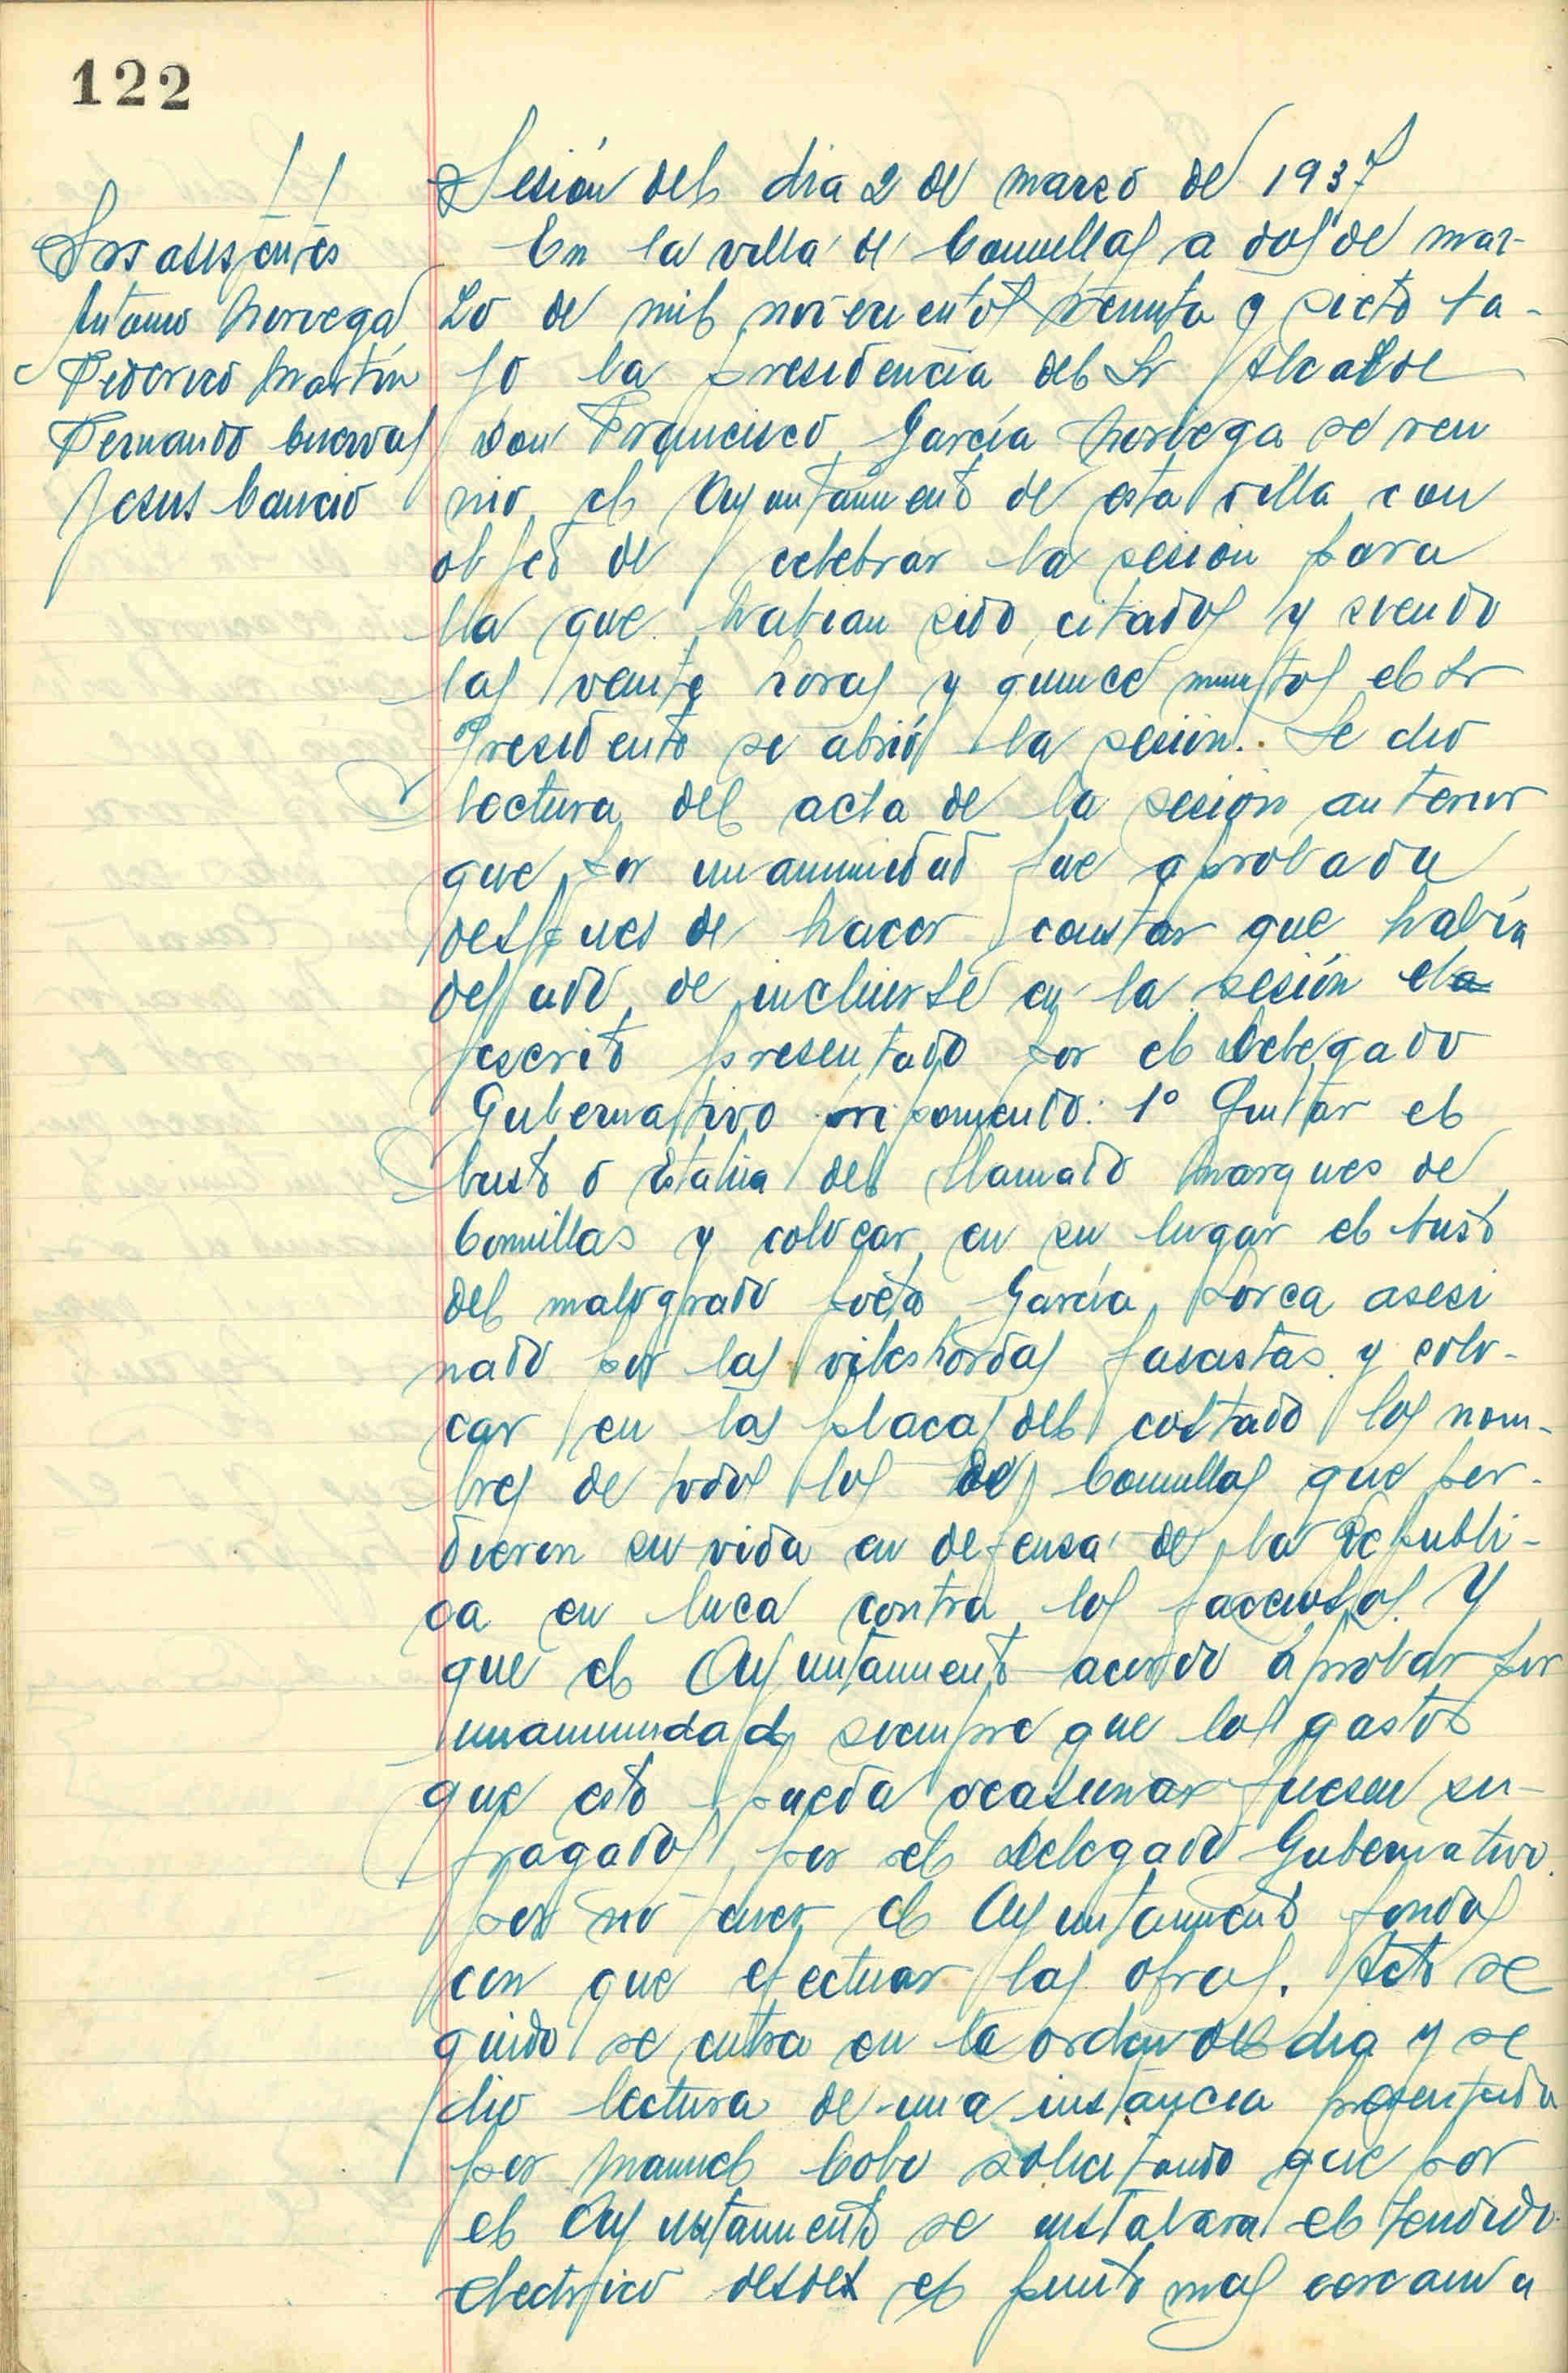 122
Srs asistentes
Antonio Noriega
Federico Martín
Fernando Cuevas
Jesus Cancio
Sesión del dia 2 de marzo de 1937
En la villa de Comillas a dos de mar-
zo de mil novecientos treinta y siete ba-
jo la presidencia del Sr Alcalde
Don Francisco García Noriega se reu
nio el Ayuntamiento de esta villa con
objeto de celebrar la sesion para
la que habian sido citados y siendo
las veinte horas y quince minutos el Sr
Presidente se abrió la sesión. Se dio
lectura del acta de la sesion anterior
que por unanimidad fue aprobada
despues de hacer constar que había
dejado de incluirse en la sesión el
escrito presentado por el Delegado
Gubernativo proponiendo: 1º Quitar el
busto o Estatua del llamado Marques de
Comillas y colocar en su lugar el busto
del malogrado poeta García Lorca asesi
nado por las viles hordas fascistas y colo-
car en las placas del costado los nom-
bres de todos los de Comillas que per-
dieron su vida en defensa de la Republi-
ca en luca contra los facciosos. Y
que el Ayuntamiento acordo aprobar por
unanimidad siempre que los gastos
que esto pueda ocasionar fuesen su-
fragados por el Delegado Gubernativo
por no tener el Ayuntamiento fondos
con que efectuar las obras. Acto se
guido se entra en la orden del dia y se
dio lectura de una instancia presentada
por Manuel Cobo solicitando que por
el Ayuntamiento se instalara el tendido
electrico desde el punto mas cercano a